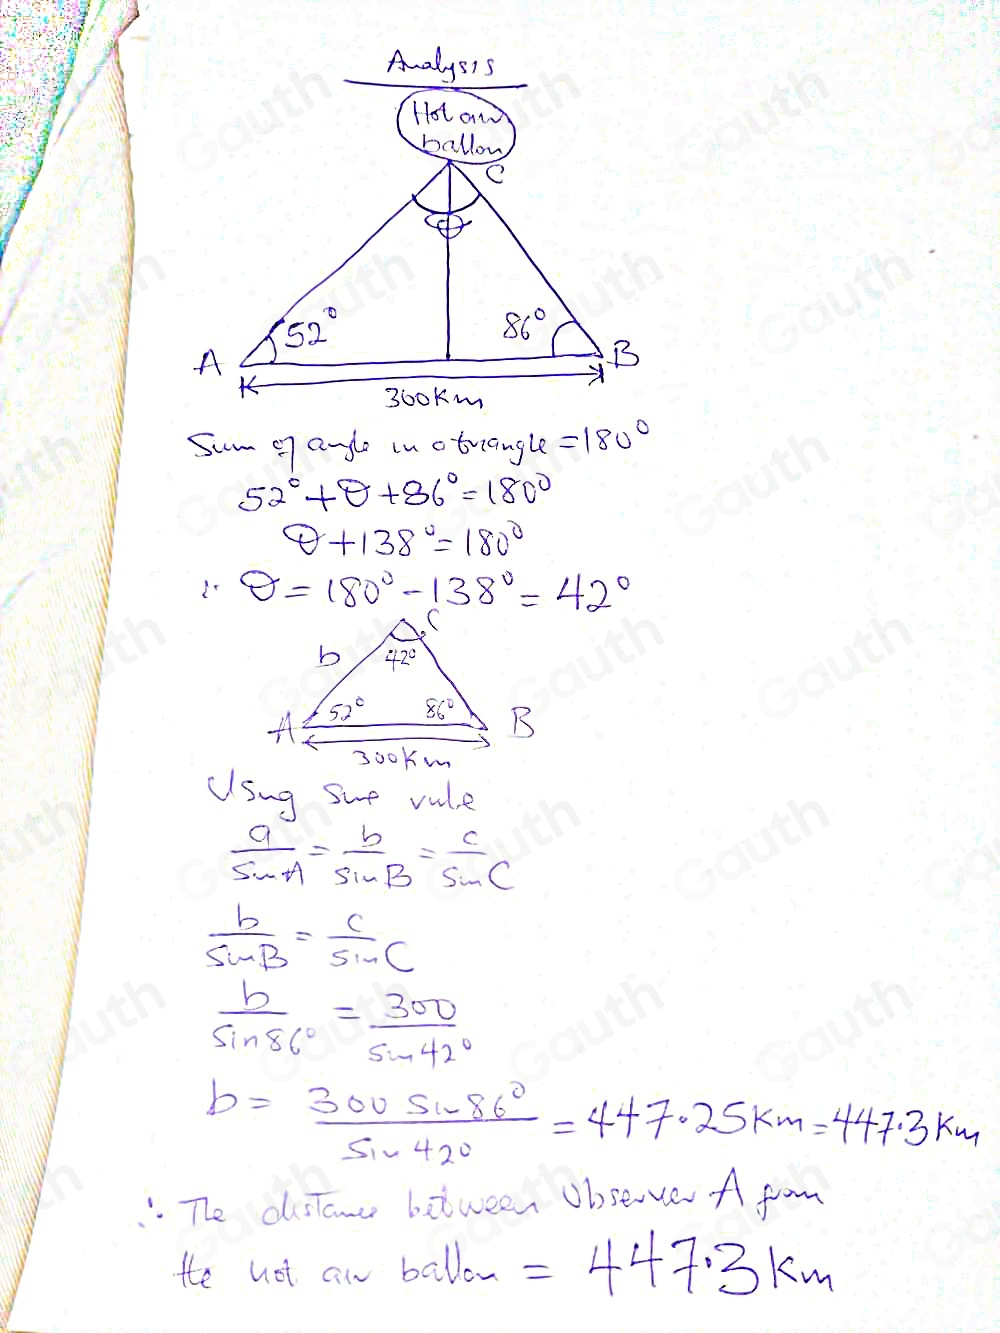 Analysis
Hot air
ballon
C
θ
52° 86°
A B
300km
Sum of angle in a triangle = 180°
52° + θ + 86° = 180°
θ + 138° = 180°
∴ θ = 180° - 138° = 42°
C
b 42°
52° 86°
A B
300km
Using Sine rule
a/SinA = b/SinB = c/SinC
b/SinB = c/SinC
b/Sin86° = 300/Sin42°
b = 300 Sin86°/Sin42° = 447.25km = 447.3km
∴ The distance between observer A from
the hot air ballon = 447.3km
Gauth